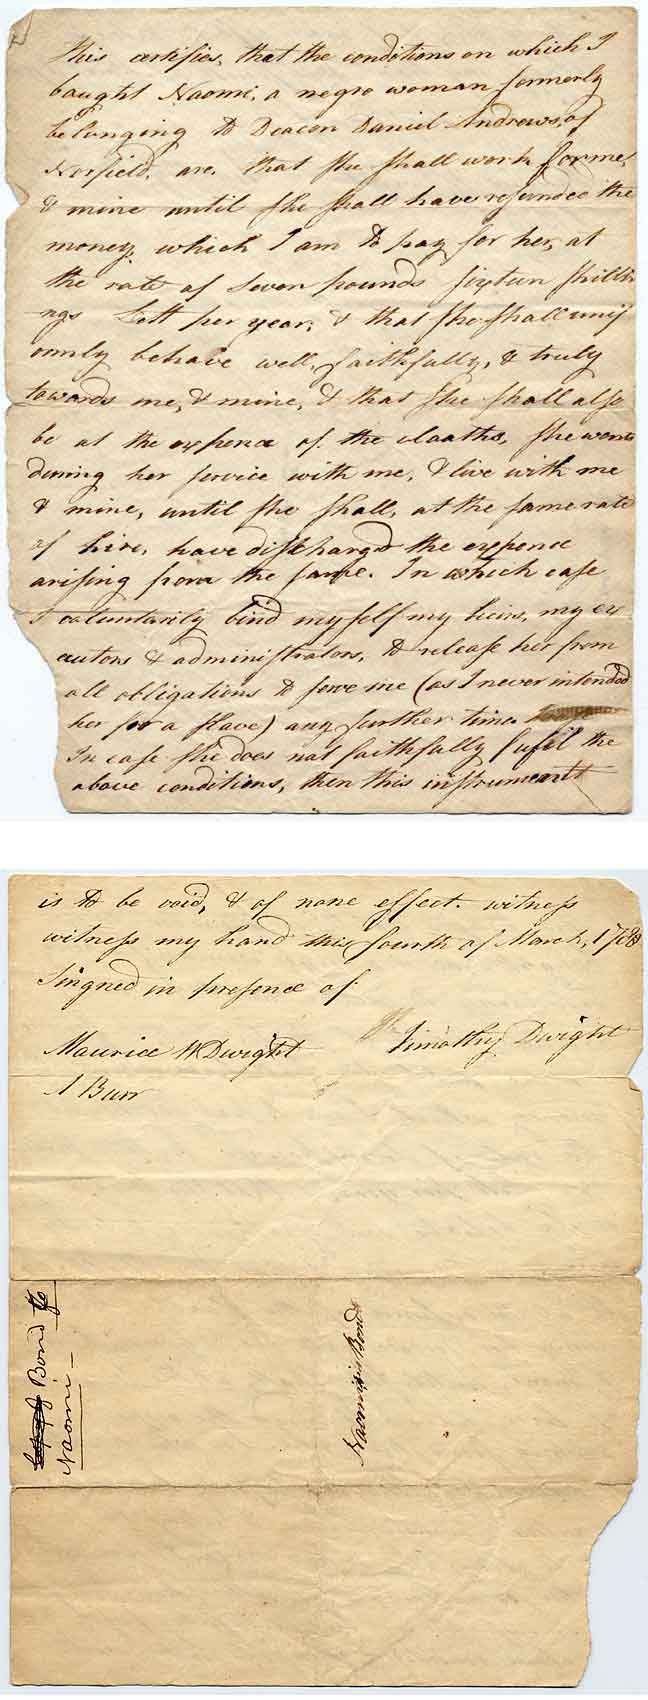 This certifies, that the conditions on which I
bought Naomi, a negro woman formerly
belonging to Deacon Daniel Andrews, of
Norfield, are, that she shall work for me,
& mine until she shall have refunded the
money, which I am to pay for her, at
the rate of seven pounds sixteen shilli
ngs per year; & that she shall unif
ormly behave well, faithfully, & truly
towards me, & mine, & that she shall also
be at the expence of the cloaths, she wears
during her service with me, & live with me
& mine, until she shall, at the same rate
of hire, have discharged the expence
arising from the same. In which case
I voluntarily bind myself my heirs, my ex
ecutors & administrators, to release her from
all obligations to serve me (as I never intended
her for a slave) any further time.
In case she does not faithfully fulfil the
above conditions, then this instrument
is to be void, & of none effect. witness
witness my hand this fourth of March, 1788
Singned in presence of
Maurice W Dwight Timothy Dwight
A Burr
Bond to
Naomi—
Naomi's Bond